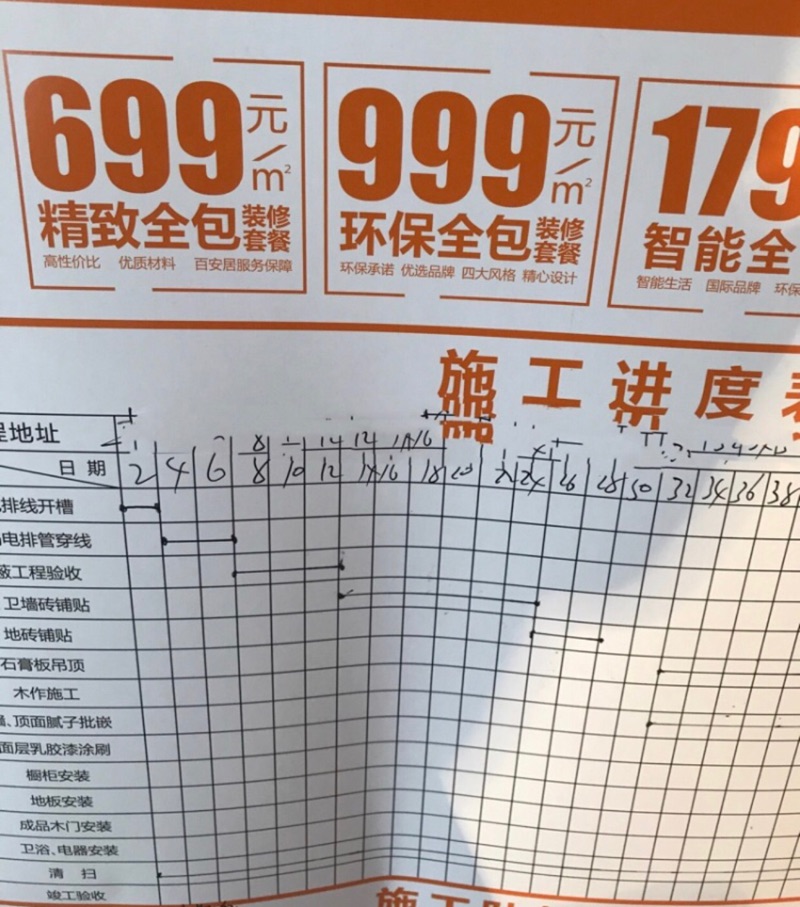 699元/m²
精致全包装修套餐
高性价比 优质材料 百安居服务保障
999元/m²
环保全包装修套餐
环保承诺 优选品牌 四大风格 精心设计
179
智能全
智能生活 国际品牌 环保
施工进度表
程地址
日期 2 4 6 8 10 12 14 16 18 20 22 24 26 28 30 32 34 36 38
排线开槽
电排管穿线
蔽工程验收
卫墙砖铺贴
地砖铺贴
石膏板吊顶
木作施工
、顶面腻子批嵌
面层乳胶漆涂刷
橱柜安装
地板安装
成品木门安装
卫浴、电器安装
清扫
竣工验收